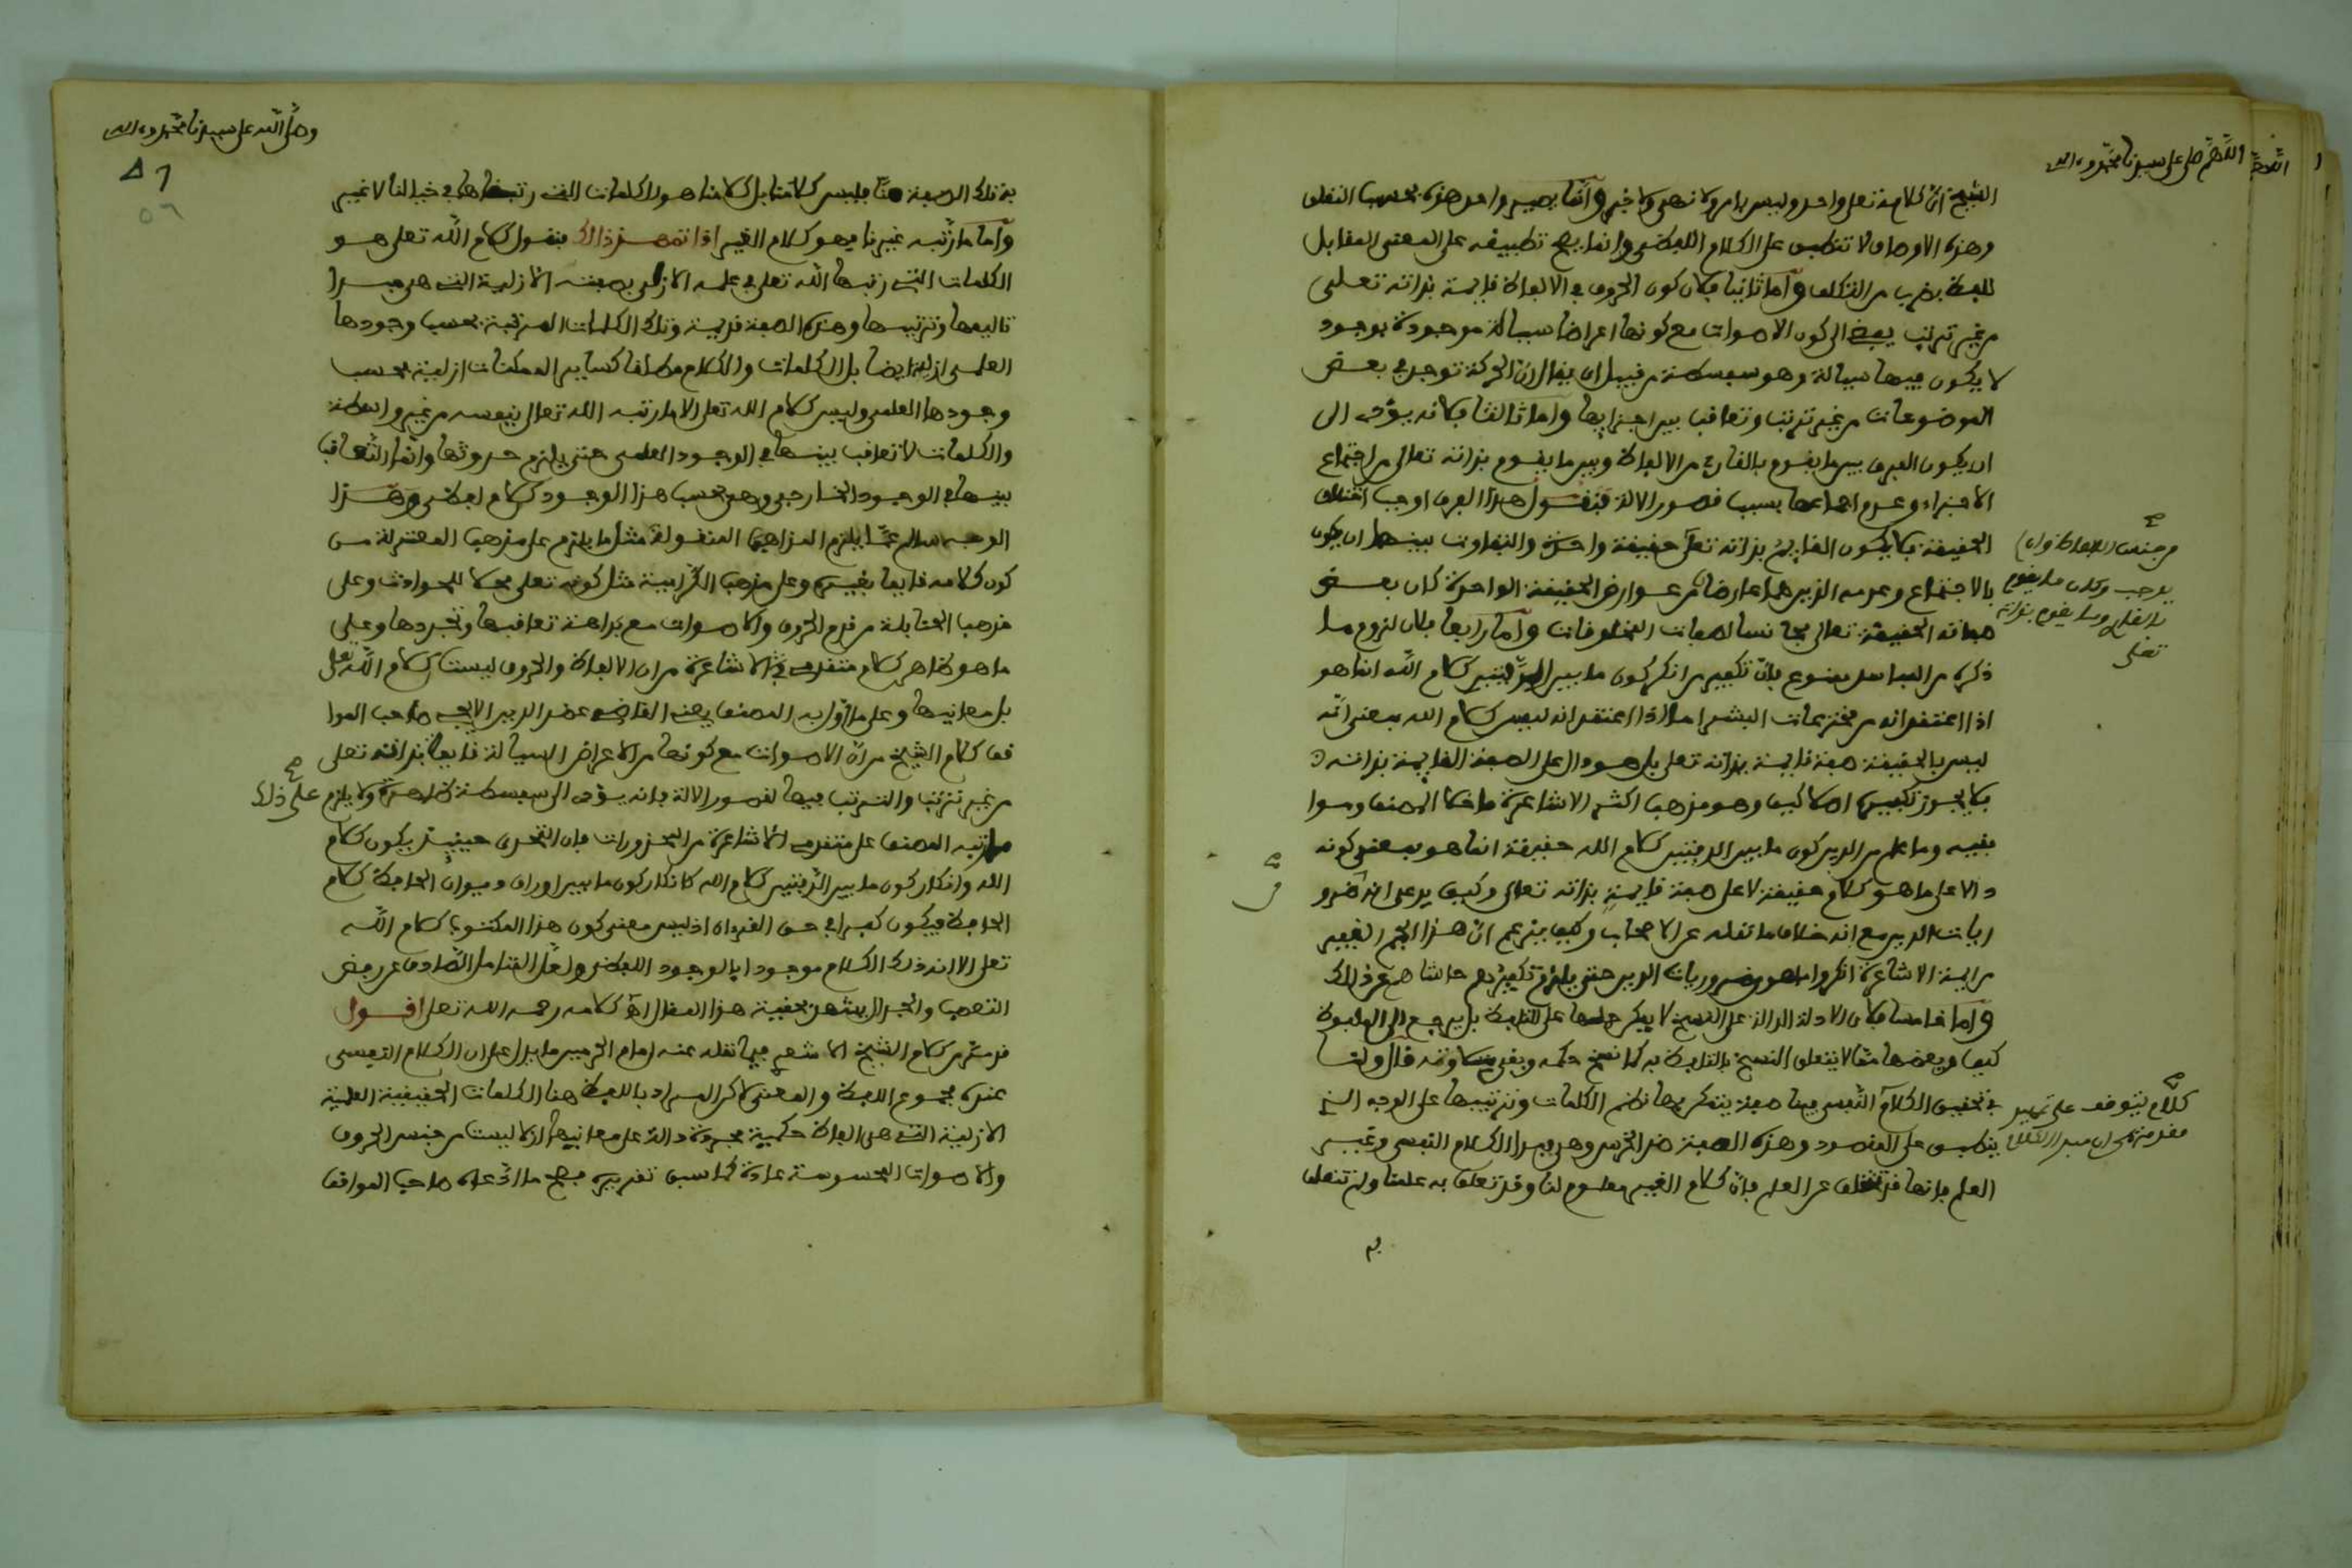 اللهم صل على سيدنا محمد وءاله
الشيخ ان كلامه تعلى واحد وليس بامر ولا نهي ولا خبر وانما يصير واحد هذه بحسب التعلق
وهذه الاوصاف لا تنطبق على الكلام اللفظي وانما يصح تطبيقه على المعنى المقابل
للفظ بضرب من التكلف وأما ثانيا فلأن كون الحروف في الالفاظ قايمة بذاته تعلى
من غير ترتيب يفضي الى كون الاصوات مع كونها اعراضا سيالة موجودة بوجود
لا يكون فيها سيالة وهو سفسطة من قبيل ان يقال ان الحركة توجد في بعض
الموضوعات من غير ترتب وتعاقب بين اجزايها وأما ثالثا فلانه يؤدي الى
ان يكون الفرق بين ما يقوم بالقارئ من الالفاظ وبين ما يقوم بذاته تعالى من اجتماع
الاجزاء وعدم اجتماعها بسبب قصور الالة فنقول هذا الفرق ان اوجب اختلاف
الحقيقة فلا يكون القايم بذاته تعلى حقيقة واحدة والتفاوت بينهما ان يكون
بالاجتماع وعدمه الذين هما عارضان من عوارض الحقيقة الواحدة كان بعض
صفاته الحقيقة تعالى مجانسا لصفات المخلوقات وأما رابعا فلان لزوم ما
ذكره من المفاسد ممنوع فان تكفير من انكر كون ما بين الدفتين كلام الله انما هو
اذا اعتقد انه من مخترعات البشر اما اذا اعتقد انه ليس كلام الله بمعنى انه
ليس بالحقيقة صفة قايمة بذاته تعلى بل هو دال على الصفة القايمة بذاته
فلا يجوز تكفيره اصلا كيف وهو مذهب اكثر الاشاعرة ما خلا المصنف وموا
فقيه وما علم من الدين كون ما بين الدفتين كلام الله حقيقة انما هو بمعنى كونه
دالا على ما هو كلام حقيقة لا على صفة قايمة بذاته تعالى وكيف يدعى انه من ضرو
ريات الدين مع انه خلاف ما نقله عن الاصحاب وكيف يزعم ان هذا الجم الغفير
من ايمة الاشاعرة انكروا ما هو من ضروريات الدين حتى يلزم تكفيرهم حاشاهم عن ذالك
وأما خامسا فلان الادلة الدالة على النسخ لا يمكن حملها على التلفظ بل يرجع الى الملفوظ
كيف وبعضها مما لا يتعلق النسخ بالتلفظ به كما نسخ حكمه وبقي تلاوته قال ولنا
في تحقيق الكلام النفسي فينا صفة يتمكن بها من نظم الكلمات وترتيبها على الوجه الذي
ينطبق على المقصود وهذه الصفة ضد الخرس وهي مبدا الكلام النفسي وغيير
العلم فانها قد تتخلف عن العلم فان كلام الغير معلوم لنا وقد تعلق به علمنا ولم تتعلق
به
من جنس الالفاظ وان لم
يوجب وكان ما يقوم
بالقاري وما يقوم بذاته
تعلى
كلام يتوقف على تمهيد
مقدمة وهي ان مبدا الكلام
وصلى الله على سيدنا محمد وءاله
٥٦
به تلك الصفة منا فليس كلامنا بل كلامنا هو الكلمات التي رتبناها في خيالنا لا غير
وأما ما رتبه غيرنا فهو كلام الغير اذا تمهد ذالك فنقول كلام الله تعلى هو
الكلمات التي رتبها الله تعلى في علمه الازلي بصفته الازلية التي هي مبدا
تاليفها وترتيبها وهذه الصفة قديمة وتلك الكلمات المترتبة بحسب وجودها
العلمي ازلية ايضا بل الكلمات والكلام مطلقا كساير الممكنات ازلية بحسب
وجودها العلمي وليس كلام الله تعلى الا ما رتبه الله تعالى بنفسه من غير واسطة
والكلمات لا تعاقب بينها في الوجود العلمي حتى يلزم حدوثها وانما التعاقب
بينها في الوجود الخارجي وهي بحسب هذا الوجود كلام لفظي وهذا
الوجه سالم عما يلزم المذاهب المنقولة مثل ما يلزم على مذهب المعتزلة من
كون كلامه قايما بغيره وعلى مذهب الكرامية مثل كونه تعلى محلا للحوادث وعلى
مذهب الحنابلة من قدم الحروف والاصوات مع بداهة تعاقبها وتجددها وعلى
ما هو ظاهر كلام متقدمي الاشاعرة من ان الالفاظ والحروف ليست كلام الله تعلى
بل معانيها وعلى ما اول به المصنف يعني القاضي عضد الدين الايجي صاحب الموا
قف كلام الشيخ من ان الاصوات مع كونها من الاعراض السيالة قايمة بذاته تعلى
من غير ترتب والترتب فيها لقصور الالة فانه يؤدي الى سفسطة ظاهرة ولا يلزم على ذلك
ما رتبه المصنف على متقدمي الاشاعرة من المحذورات فان التحدي حينئذ يكون كلام
الله وانكار كون ما بين الدفتين كلام الله كانكار كون ما بين اوراق ديوان الحافظ كلام
الحافظ فيكون كفرا في حق القرءان اذ ليس معنى كون هذا المكتوب كلام الله
تعلى الا انه ذلك الكلام موجودا بالوجود اللفظي ولعل المتامل الصادق عن رفض
التعصب والجدال يشهد بحقية هذا المقال اه كلامه رحمه الله تعلى اقول
قد مر من كلام الشيخ الاشعري فيما نقله عنه امام الحرمين ما يدل على ان الكلام النفسي
عنده مجموع اللفظ والمعنى لاكن المراد باللفظ هنا الكلمات الحقيقية العلمية
الازلية التي هي الفاظ حكمية مجردة دالة على معانيها ازلا ليست من جنس الحروف
والاصوات المحسوسة عادة كما سبق تقريره فصح ما ادعاه صاحب المواقف